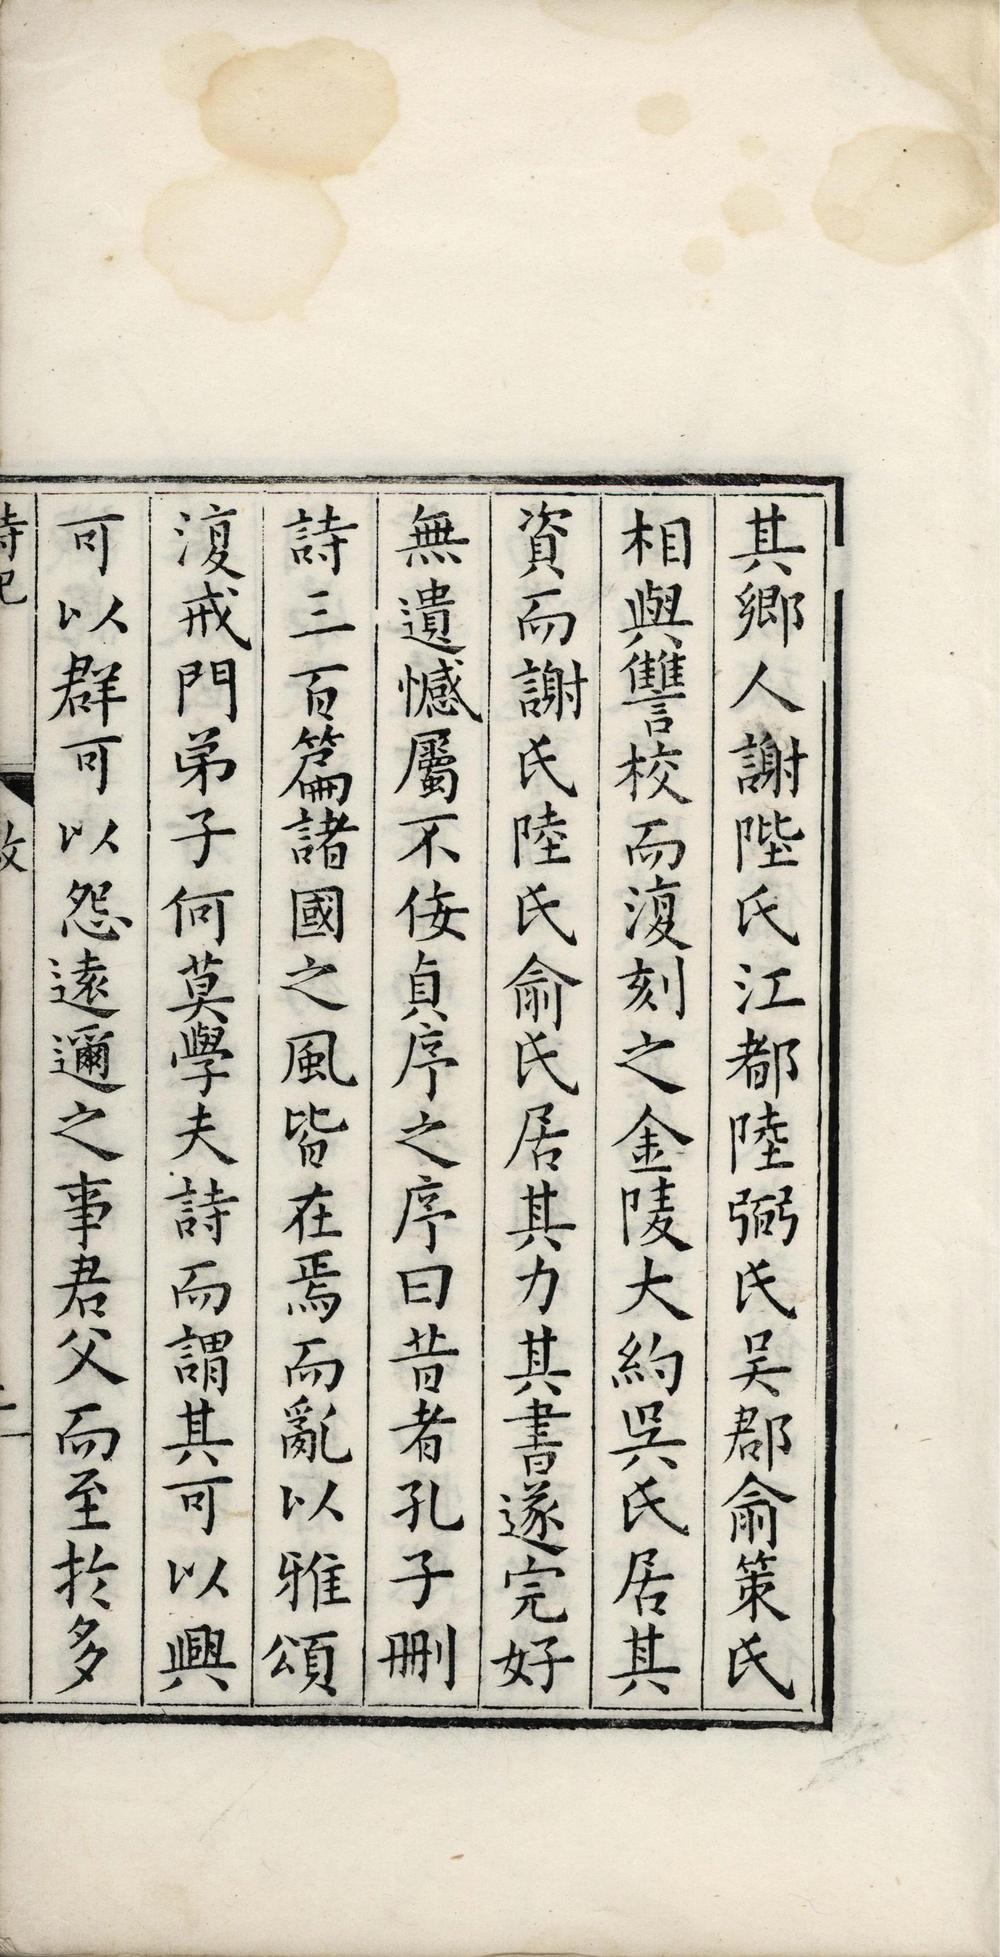 其鄉人謝陛氏江都陸弼氏吴郡俞策氏
相與讐校而復刻之金陵大約吳氏居其
資而謝氏陸氏俞氏居其力其書遂完好
無遺憾屬不佞貞序之序曰昔者孔子刪
詩三百篇諸國之風皆在焉而亂以雅頌
復戒門弟子何莫學夫詩而謂其可以興
可以群可以怨遠邇之事君父而至於多
詩紀